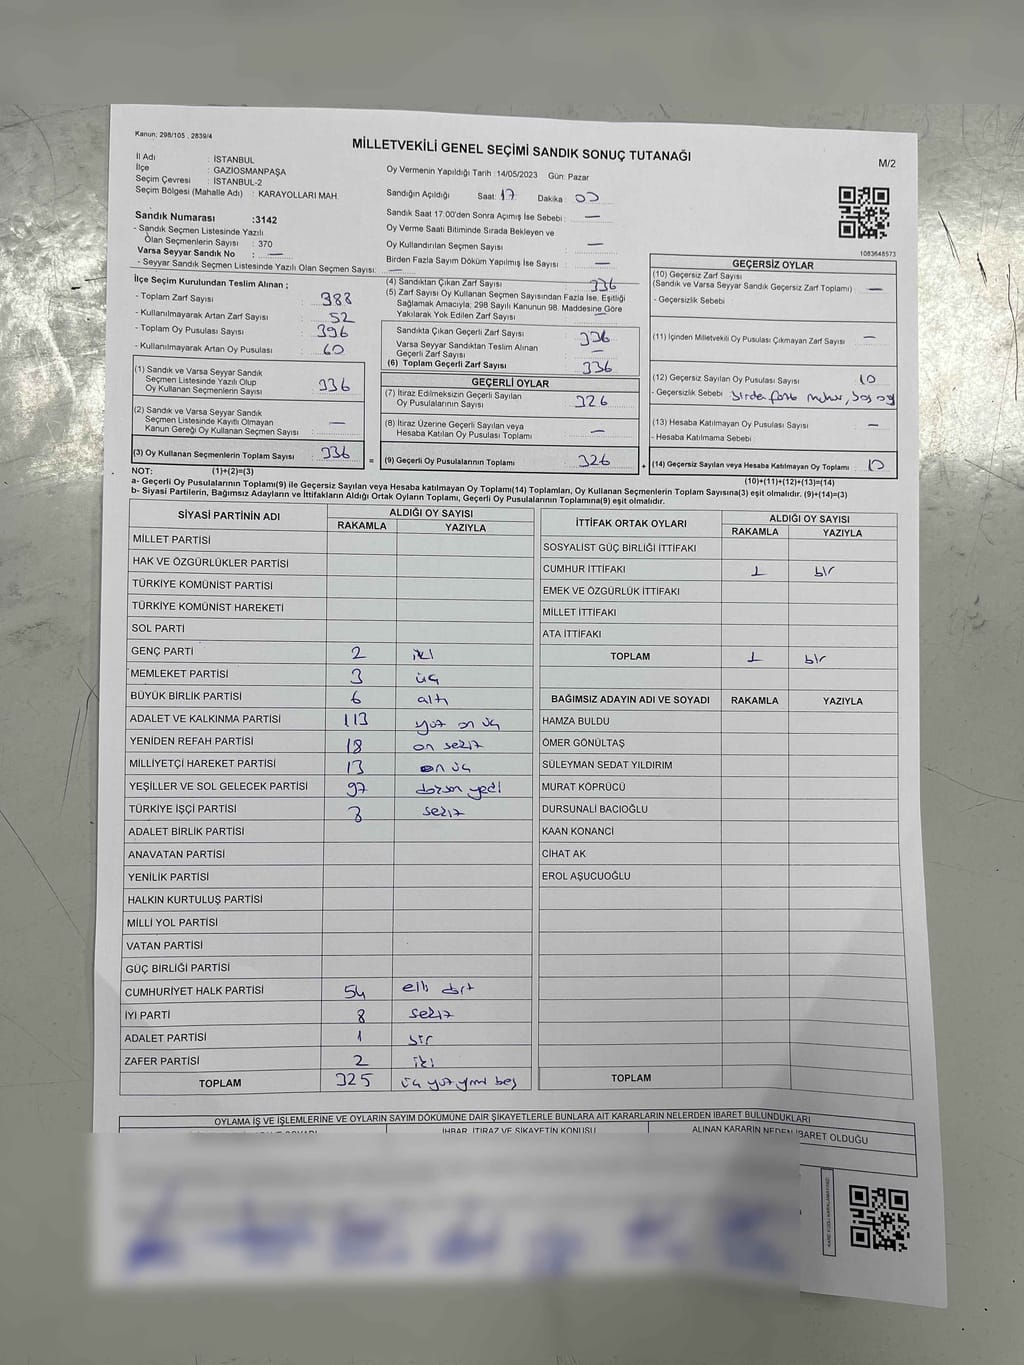 Kanun; 298/105 , 2839/4
MİLLETVEKİLİ GENEL SEÇİMİ SANDIK SONUÇ TUTANAĞI
M/2
İl Adı : İSTANBUL
İlçe : GAZİOSMANPAŞA
Seçim Çevresi : İSTANBUL-2
Seçim Bölgesi (Mahalle Adı) : KARAYOLLARI MAH.
Oy Vermenin Yapıldığı Tarih :14/05/2023 Gün: Pazar
Sandığın Açıldığı Saat: 17 Dakika : 00
Sandık Saat 17:00'den Sonra Açımış İse Sebebi : —
Oy Verme Saati Bitiminde Sırada Bekleyen ve
Oy Kullandırılan Seçmen Sayısı : —
Birden Fazla Sayım Döküm Yapılmış İse Sayısı : —
Sandık Numarası :3142
- Sandık Seçmen Listesinde Yazılı
Olan Seçmenlerin Sayısı : 370
Varsa Seyyar Sandık No : —
- Seyyar Sandık Seçmen Listesinde Yazılı Olan Seçmen Sayısı: —
1083648573
İlçe Seçim Kurulundan Teslim Alınan ;
- Toplam Zarf Sayısı : 388
- Kullanılmayarak Artan Zarf Sayısı : 52
- Toplam Oy Pusulası Sayısı : 396
- Kullanılmayarak Artan Oy Pusulası : 60
(1) Sandık ve Varsa Seyyar Sandık
Seçmen Listesinde Yazılı Olup
Oy Kullanan Seçmenlerin Sayısı : 336
(2) Sandık ve Varsa Seyyar Sandık
Seçmen Listesinde Kayıtlı Olmayan
Kanun Gereği Oy Kullanan Seçmen Sayısı : —
(3) Oy Kullanan Seçmenlerin Toplam Sayısı : 336
(4) Sandıktan Çıkan Zarf Sayısı : 336
(5) Zarf Sayısı Oy Kullanan Seçmen Sayısından Fazla İse, Eşitliği
Sağlamak Amacıyla, 298 Sayılı Kanunun 98. Maddesine Göre
Yakılarak Yok Edilen Zarf Sayısı : —
Sandıkta Çıkan Geçerli Zarf Sayısı : 336
Varsa Seyyar Sandıktan Teslim Alınan
Geçerli Zarf Sayısı : —
(6) Toplam Geçerli Zarf Sayısı : 336
GEÇERLİ OYLAR
(7) İtiraz Edilmeksizin Geçerli Sayılan
Oy Pusulalarının Sayısı : 326
(8) İtiraz Üzerine Geçerli Sayılan veya
Hesaba Katılan Oy Pusulası Toplamı : —
= (9) Geçerli Oy Pusulalarının Toplamı : 326
GEÇERSİZ OYLAR
(10) Geçersiz Zarf Sayısı
(Sandık ve Varsa Seyyar Sandık Geçersiz Zarf Toplamı) : —
- Geçersizlik Sebebi
(11) İçinden Milletvekili Oy Pusulası Çıkmayan Zarf Sayısı : —
(12) Geçersiz Sayılan Oy Pusulası Sayısı : 10
- Geçersizlik Sebebi : birden fazla mühür, boş oy
(13) Hesaba Katılmayan Oy Pusulası Sayısı : —
- Hesaba Katılmama Sebebi
+ (14) Geçersiz Sayılan veya Hesaba Katılmayan Oy Toplamı : 10
NOT: (1)+(2)=(3) (10)+(11)+(12)+(13)=(14)
a- Geçerli Oy Pusulalarının Toplamı(9) ile Geçersiz Sayılan veya Hesaba katılmayan Oy Toplamı(14) Toplamları, Oy Kullanan Seçmenlerin Toplam Sayısına(3) eşit olmalıdır. (9)+(14)=(3)
b- Siyasi Partilerin, Bağımsız Adayların ve İttifakların Aldığı Ortak Oyların Toplamı, Geçerli Oy Pusulalarının Toplamına(9) eşit olmalıdır.
SİYASİ PARTİNİN ADI ALDIĞI OY SAYISI
RAKAMLA YAZIYLA
MİLLET PARTİSİ
HAK VE ÖZGÜRLÜKLER PARTİSİ
TÜRKİYE KOMÜNİST PARTİSİ
TÜRKİYE KOMÜNİST HAREKETİ
SOL PARTİ
GENÇ PARTİ 2 iki
MEMLEKET PARTİSİ 3 üç
BÜYÜK BİRLİK PARTİSİ 6 altı
ADALET VE KALKINMA PARTİSİ 113 yüz on üç
YENİDEN REFAH PARTİSİ 18 on sekiz
MİLLİYETÇİ HAREKET PARTİSİ 13 on üç
YEŞİLLER VE SOL GELECEK PARTİSİ 97 doksan yedi
TÜRKİYE İŞÇİ PARTİSİ 8 sekiz
ADALET BİRLİK PARTİSİ
ANAVATAN PARTİSİ
YENİLİK PARTİSİ
HALKIN KURTULUŞ PARTİSİ
MİLLİ YOL PARTİSİ
VATAN PARTİSİ
GÜÇ BİRLİĞİ PARTİSİ
CUMHURİYET HALK PARTİSİ 54 elli dört
İYİ PARTİ 8 sekiz
ADALET PARTİSİ 1 bir
ZAFER PARTİSİ 2 iki
TOPLAM 325 üç yüz yirmi beş
İTTİFAK ORTAK OYLARI ALDIĞI OY SAYISI
RAKAMLA YAZIYLA
SOSYALİST GÜÇ BİRLİĞİ İTTİFAKI
CUMHUR İTTİFAKI 1 bir
EMEK VE ÖZGÜRLÜK İTTİFAKI
MİLLET İTTİFAKI
ATA İTTİFAKI
TOPLAM 1 bir
BAĞIMSIZ ADAYIN ADI VE SOYADI RAKAMLA YAZIYLA
HAMZA BULDU
ÖMER GÖNÜLTAŞ
SÜLEYMAN SEDAT YILDIRIM
MURAT KÖPRÜCÜ
DURSUNALİ BACIOĞLU
KAAN KONANCİ
CİHAT AK
EROL AŞUCUOĞLU
TOPLAM
OYLAMA İŞ VE İŞLEMLERİNE VE OYLARIN SAYIM DÖKÜMÜNE DAİR ŞİKAYETLERLE BUNLARA AİT KARARLARIN NELERDEN İBARET BULUNDUKLARI
İHBAR, İTİRAZ VE ŞİKAYETİN KONUSU
ALINAN KARARIN NEDEN İBARET OLDUĞU